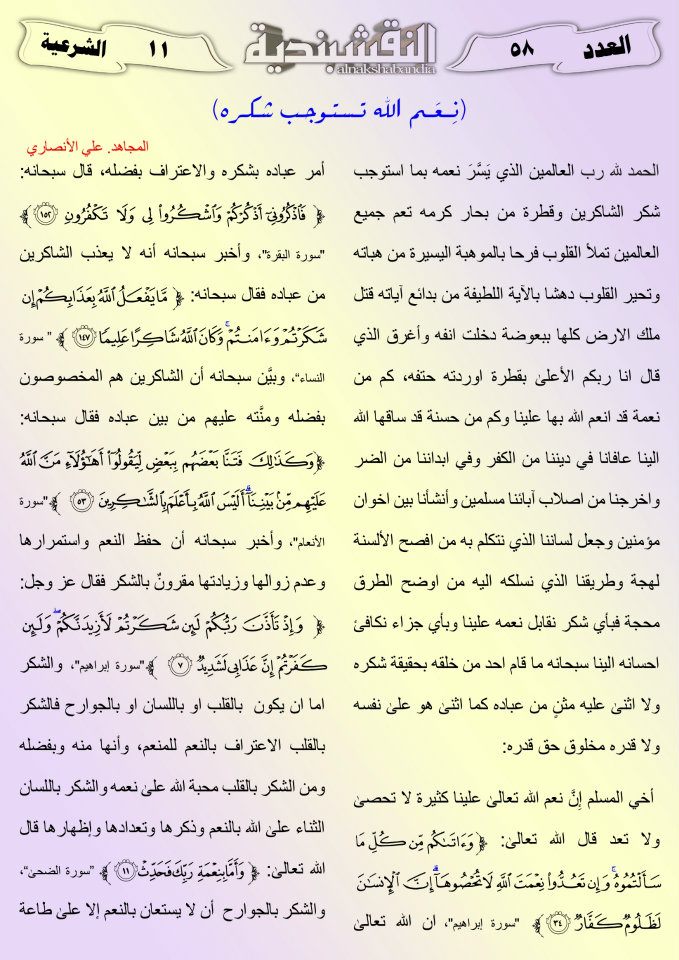 العدد ٥٨
النقشبندية
alnakshabandia
١١ الشرعية
(نِعَم الله تستوجب شكره)
المجاهد. علي الأنصاري
الحمد لله رب العالمين الذي يَسَّرَ نعمه بما استوجب
شكر الشاكرين وقطرة من بحار كرمه تعم جميع
العالمين تملأ القلوب فرحا بالموهبة اليسيرة من هباته
وتحير القلوب دهشا بالآية اللطيفة من بدائع آياته قتل
ملك الارض كلها ببعوضة دخلت انفه وأغرق الذي
قال انا ربكم الأعلىٰ بقطرة اوردته حتفه، كم من
نعمة قد انعم الله بها علينا وكم من حسنة قد ساقها الله
الينا عافانا في ديننا من الكفر وفي ابداننا من الضر
واخرجنا من اصلاب آبائنا مسلمين وأنشأنا بين اخوان
مؤمنين وجعل لساننا الذي نتكلم به من افصح الألسنة
لهجة وطريقنا الذي نسلكه اليه من اوضح الطرق
محجة فبأي شكر نقابل نعمه علينا وبأي جزاء نكافئ
احسانه الينا سبحانه ما قام احد من خلقه بحقيقة شكره
ولا اثنىٰ عليه مثنٍ من عباده كما اثنىٰ هو علىٰ نفسه
ولا قدره مخلوق حق قدره:
أخي المسلم إنَّ نعم الله تعالىٰ علينا كثيرة لا تحصىٰ
ولا تعد قال الله تعالىٰ: ﴿ وَءَاتَىٰكُم مِّن كُلِّ مَا
سَأَلْتُمُوهُ ۚ وَإِن تَعُدُّوا۟ نِعْمَتَ ٱللَّهِ لَا تُحْصُوهَآ ۗ إِنَّ ٱلْإِنسَٰنَ
لَظَلُومٌ كَفَّارٌ ﴿٣٤﴾ ﴾ "سورة إبراهيم"، ان الله تعالىٰ
أمر عباده بشكره والاعتراف بفضله، قال سبحانه:
﴿ فَٱذْكُرُونِىٓ أَذْكُرْكُمْ وَٱشْكُرُوا۟ لِى وَلَا تَكْفُرُونِ ﴿١٥٢﴾ ﴾
"سورة البقرة"، وأخبر سبحانه أنه لا يعذب الشاكرين
من عباده فقال سبحانه: ﴿ مَّا يَفْعَلُ ٱللَّهُ بِعَذَابِكُمْ إِن
شَكَرْتُمْ وَءَامَنتُمْ ۚ وَكَانَ ٱللَّهُ شَاكِرًا عَلِيمًا ﴿١٤٧﴾ ﴾ " سورة
النساء"، وبيَّن سبحانه أن الشاكرين هم المخصوصون
بفضله ومنَّته عليهم من بين عباده فقال سبحانه:
﴿وَكَذَٰلِكَ فَتَنَّا بَعْضَهُم بِبَعْضٍ لِّيَقُولُوٓا۟ أَهَٰٓؤُلَآءِ مَنَّ ٱللَّهُ
عَلَيْهِم مِّنۢ بَيْنِنَآ ۗ أَلَيْسَ ٱللَّهُ بِأَعْلَمَ بِٱلشَّٰكِرِينَ ﴿٥٣﴾ ﴾"سورة
الأنعام"، وأخبر سبحانه أن حفظ النعم واستمرارها
وعدم زوالها وزيادتها مقرونٌ بالشكر فقال عز وجل:
﴿ وَإِذْ تَأَذَّنَ رَبُّكُمْ لَئِن شَكَرْتُمْ لَأَزِيدَنَّكُمْ ۖ وَلَئِن
كَفَرْتُمْ إِنَّ عَذَابِى لَشَدِيدٌ ﴿٧﴾ ﴾"سورة إبراهيم"، والشكر
اما ان يكون بالقلب او باللسان او بالجوارح فالشكر
بالقلب الاعتراف بالنعم للمنعم، وأنها منه وبفضله
ومن الشكر بالقلب محبة الله علىٰ نعمه والشكر باللسان
الثناء علىٰ الله بالنعم وذكرها وتعدادها وإظهارها قال
الله تعالىٰ: ﴿ وَأَمَّا بِنِعْمَةِ رَبِّكَ فَحَدِّثْ ﴿١١﴾ ﴾ "سورة الضحىٰ"،
والشكر بالجوارح أن لا يستعان بالنعم إلا علىٰ طاعة